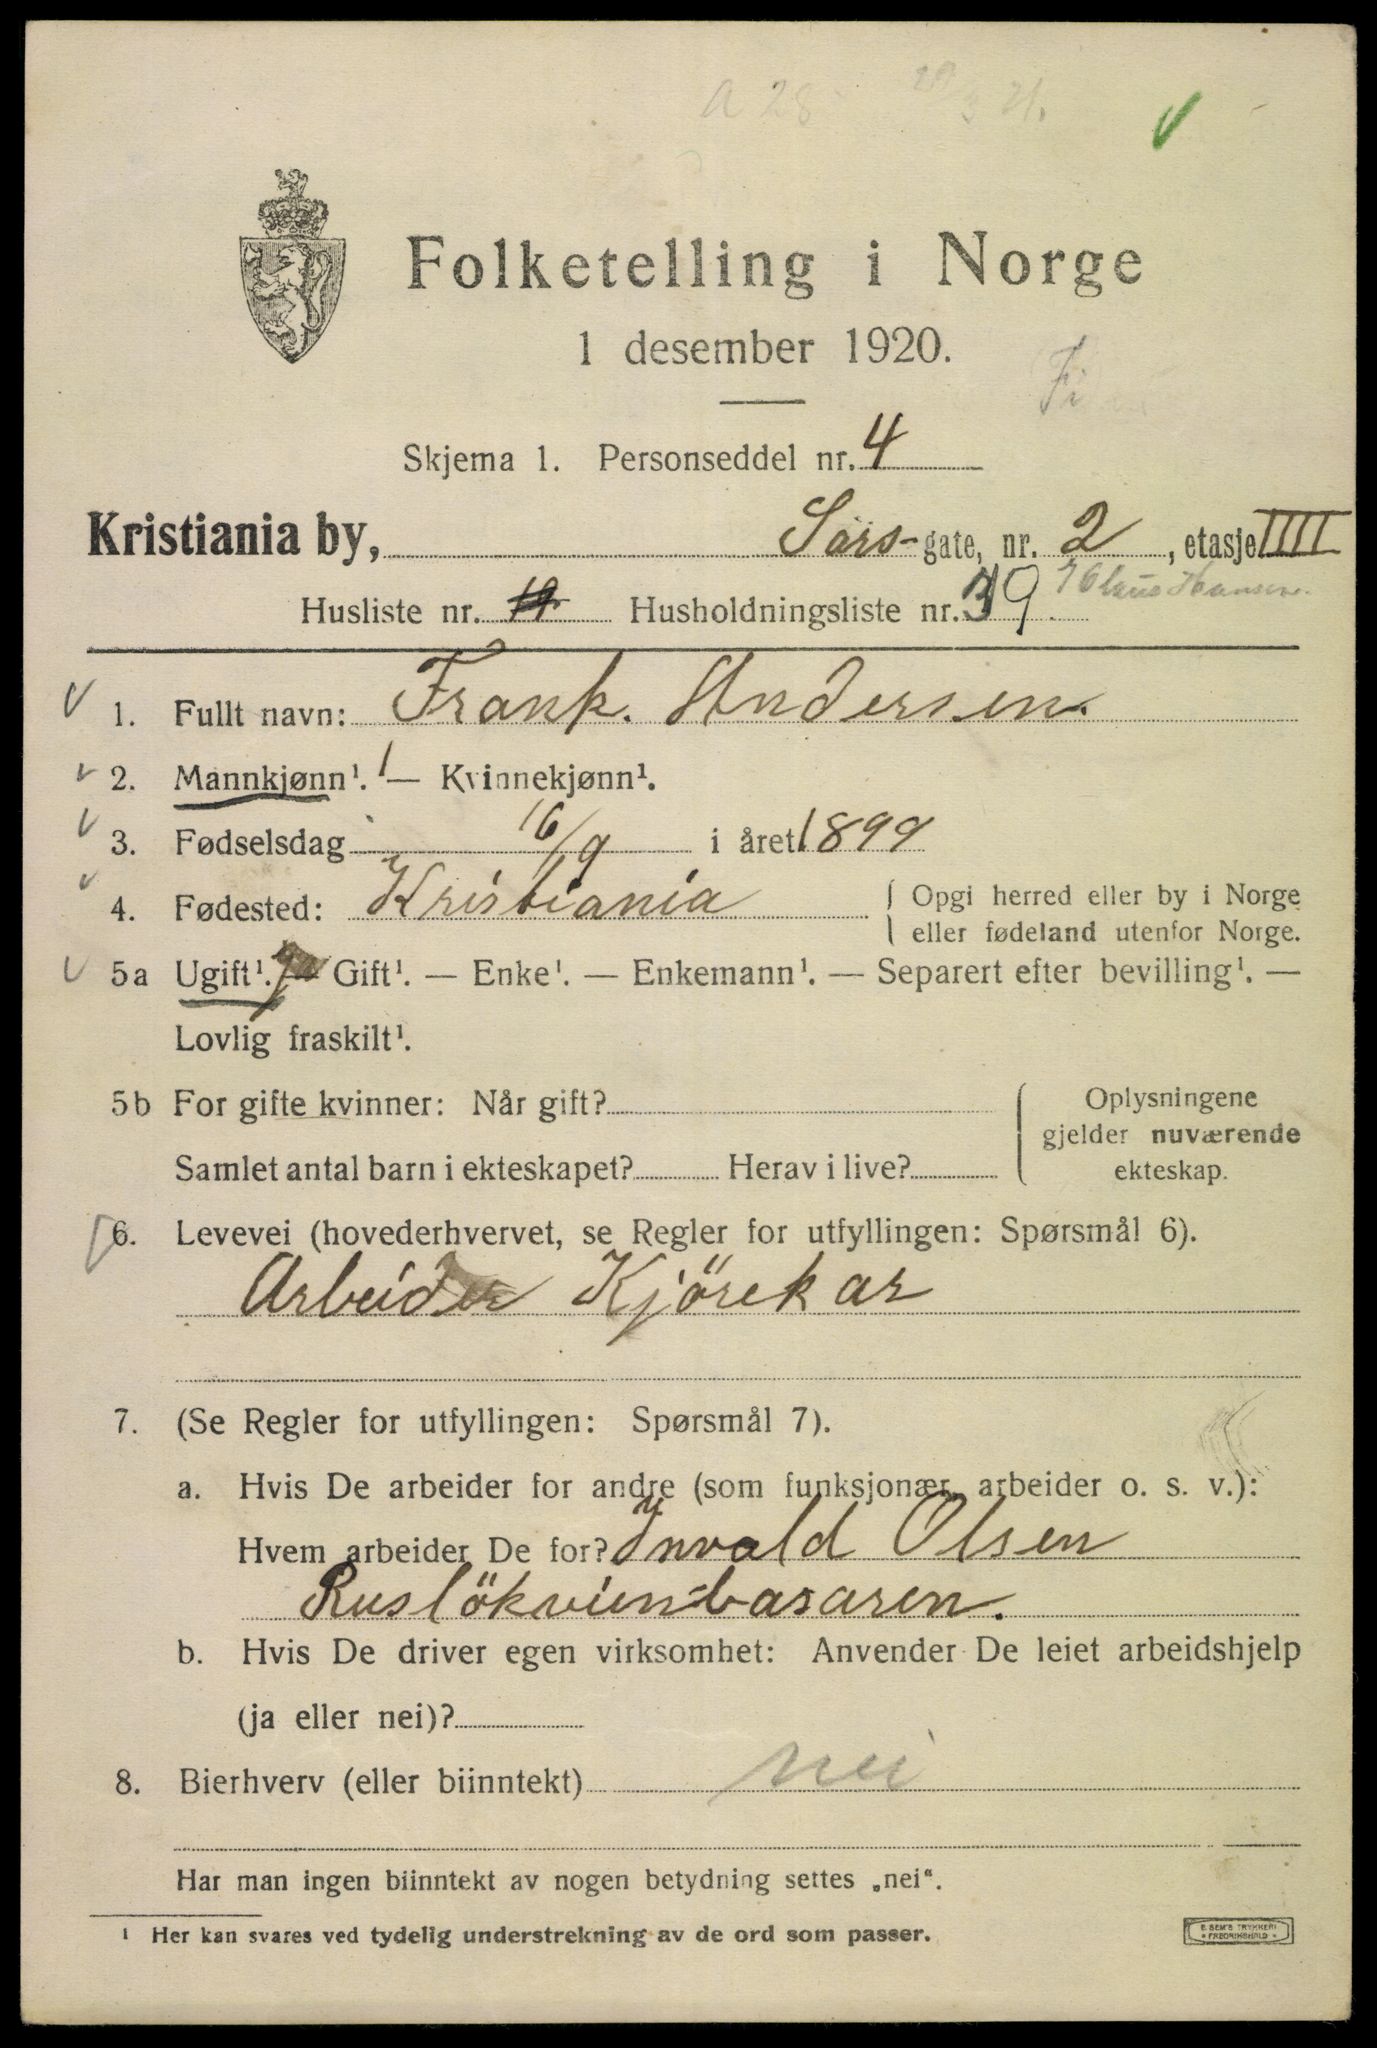 A 28 29/3 21.
Folketelling i Norge
1 desember 1920.
Skjema 1. Personseddel nr. 4
Kristiania by, Sars- gate, nr. 2, etasje IIII
Husliste nr. 19 Husholdningsliste nr. 39 Claus Hansen.
1. Fullt navn: Frank. Andersen.
2. Mannkjønn¹. — Kvinnekjønn¹.
3. Fødselsdag 16/9 i året 1899
4. Fødested: Kristiania { Opgi herred eller by i Norge
eller fødeland utenfor Norge.
5a Ugift¹. ja Gift¹. — Enke¹. — Enkemann¹. — Separert efter bevilling¹. —
Lovlig fraskilt¹.
5b For gifte kvinner: Når gift? { Oplysningene
gjelder nuværende
Samlet antal barn i ekteskapet? Herav i live? ekteskap.
6. Levevei (hovederhvervet, se Regler for utfyllingen: Spørsmål 6).
Arbeider Kjörekar
7. (Se Regler for utfyllingen: Spørsmål 7).
a. Hvis De arbeider for andre (som funksjonær, arbeider o. s. v.):
Hvem arbeider De for? Invald Olsen
Ruslökvienbasaren.
b. Hvis De driver egen virksomhet: Anvender De leiet arbeidshjelp
(ja eller nei)?
8. Bierhverv (eller biinntekt) nei
Har man ingen biinntekt av nogen betydning settes „nei“.
¹ Her kan svares ved tydelig understrekning av de ord som passer.
E. SEM'S TRYKKERI
FREDRIKSHALD